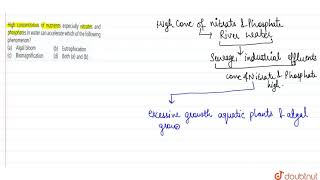 High concentration of nutrients especially nitrates and
phosphates in water can accelerate which of the following
phenomenon?
(a) Algal bloom (b) Eutrophication
(c) Biomagnification (d) Both (a) and (b)
High Conc of nitrate & Phosphate
River water
Sewage, industrial effluents
conc of Nitrate & Phosphate
high.
excessive growth aquatic plants & algal
grow
doubtnut